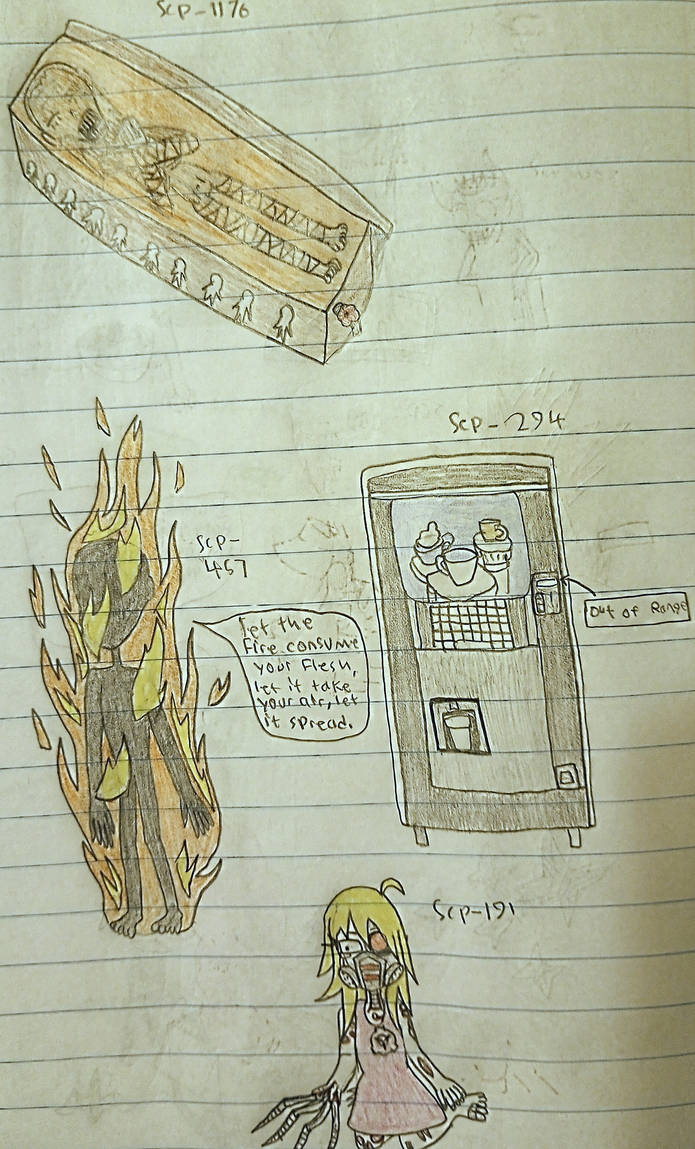 Scp-1176
Scp-294
Scp-
457
let the
Fire consume
your Flesh,
let it take
your air, let
it spread.
Out of Range
Scp-191